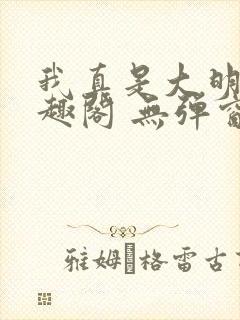 我真是大明
趣閣 無彈窗
雅姆·格雷古